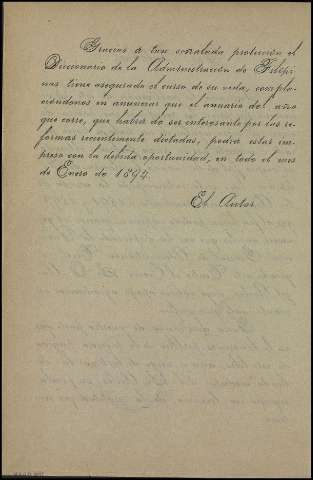 Gracias á tan señalada protección el
Diccionario de la Administración de Filipi-
nas tiene asegurado el curso de su vida, compla-
ciéndonos en anunciar que el anuario del año
que corre, que habrá de ser interesante por las re-
formas recientemente dictadas, podrá estar im-
preso con la debida oportunidad, en todo el mes
de Enero de 1894.
El Autor